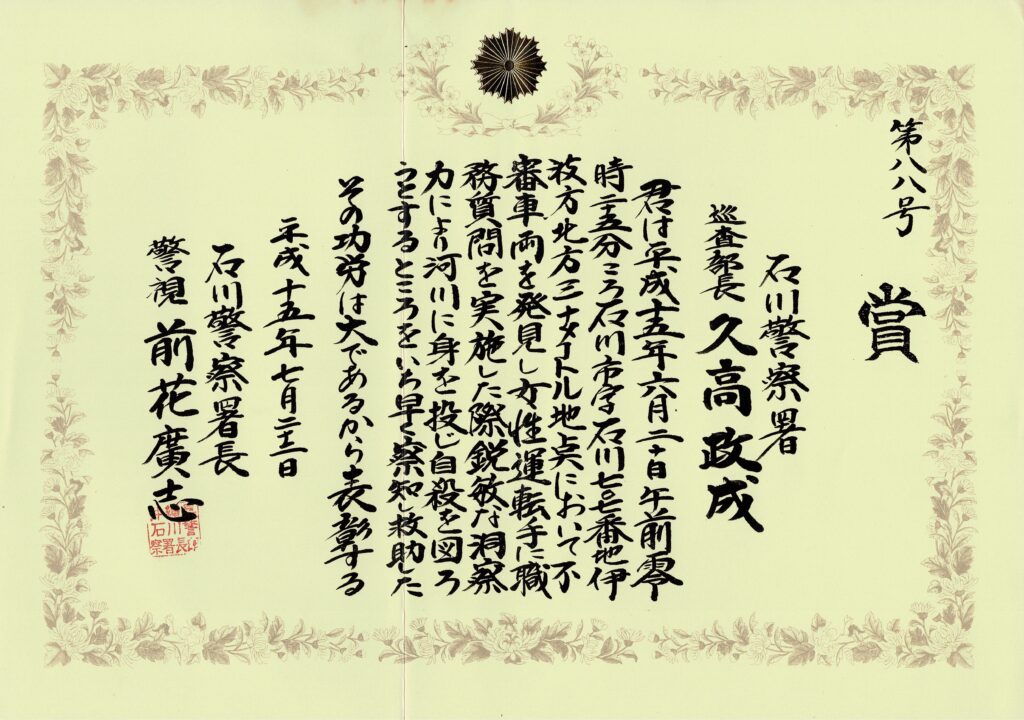 第八八号
賞
石川警察署
巡査部長 久高政成
君は平成十五年六月二十日午前零
時二五分ころ石川市字石川七七番地伊
波方地方三十メートル地点において不
審車両を発見し女性運転手に職
務質問を実施した際鋭敏な洞察
力により河川に身を投じ自殺を図ろ
うとするところをいち早く察知し救助した
その功労は大であるから表彰する
平成十五年七月二十二日
石川警察署長
警視 前花廣志